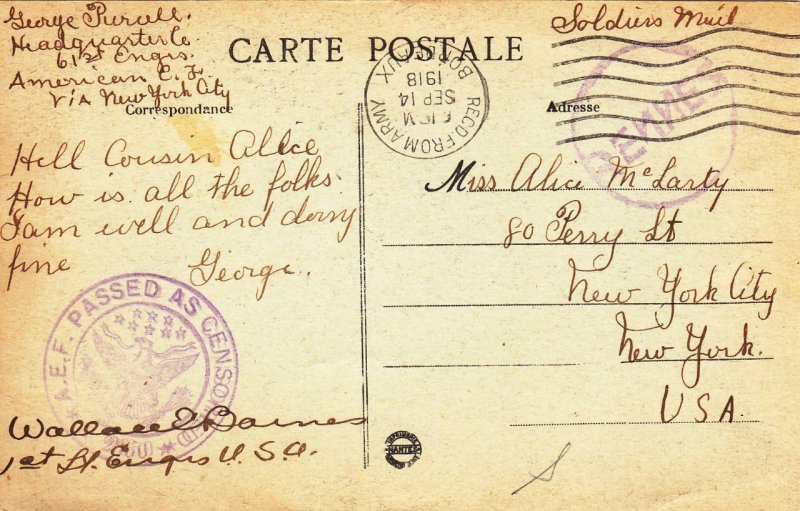 George Purcell
Headquarters Co
61st Engrs.
American E. F.
Via New York City
Soldiers Mail
CARTE POSTALE
Correspondance
Adresse
BORDEAUX
1918
SEP 14
REC'D. FROM ARMY
RENNES
Hell Cousin Alice
How is all the folks.
I am well and doing
fine George.
Miss Alice McLarty
80 Perry St
New York City
New York.
USA.
A.E.F. PASSED AS CENSORED
Wallace Barnes
1st Lt. Engrs U.S.A.
NANTES